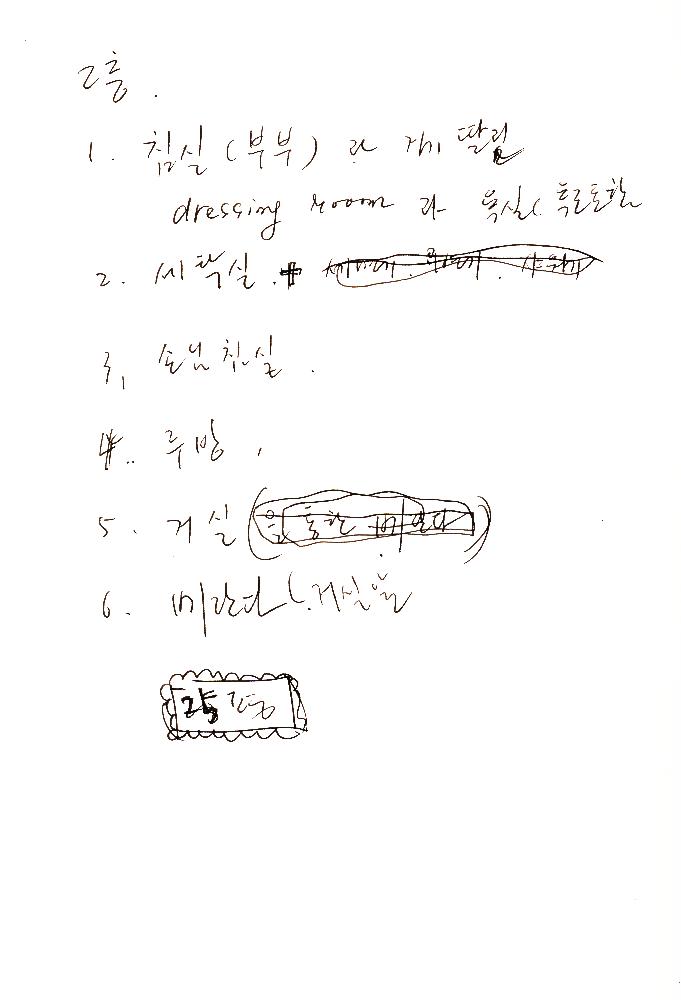 2층.
1. 침실(부부)과 게 딸린
dressing room 과 욕실(
2. 세탁실.+
3, 손님침실.
4.. 주방,
5. 거실(
6. 베란다(거실앞
2층